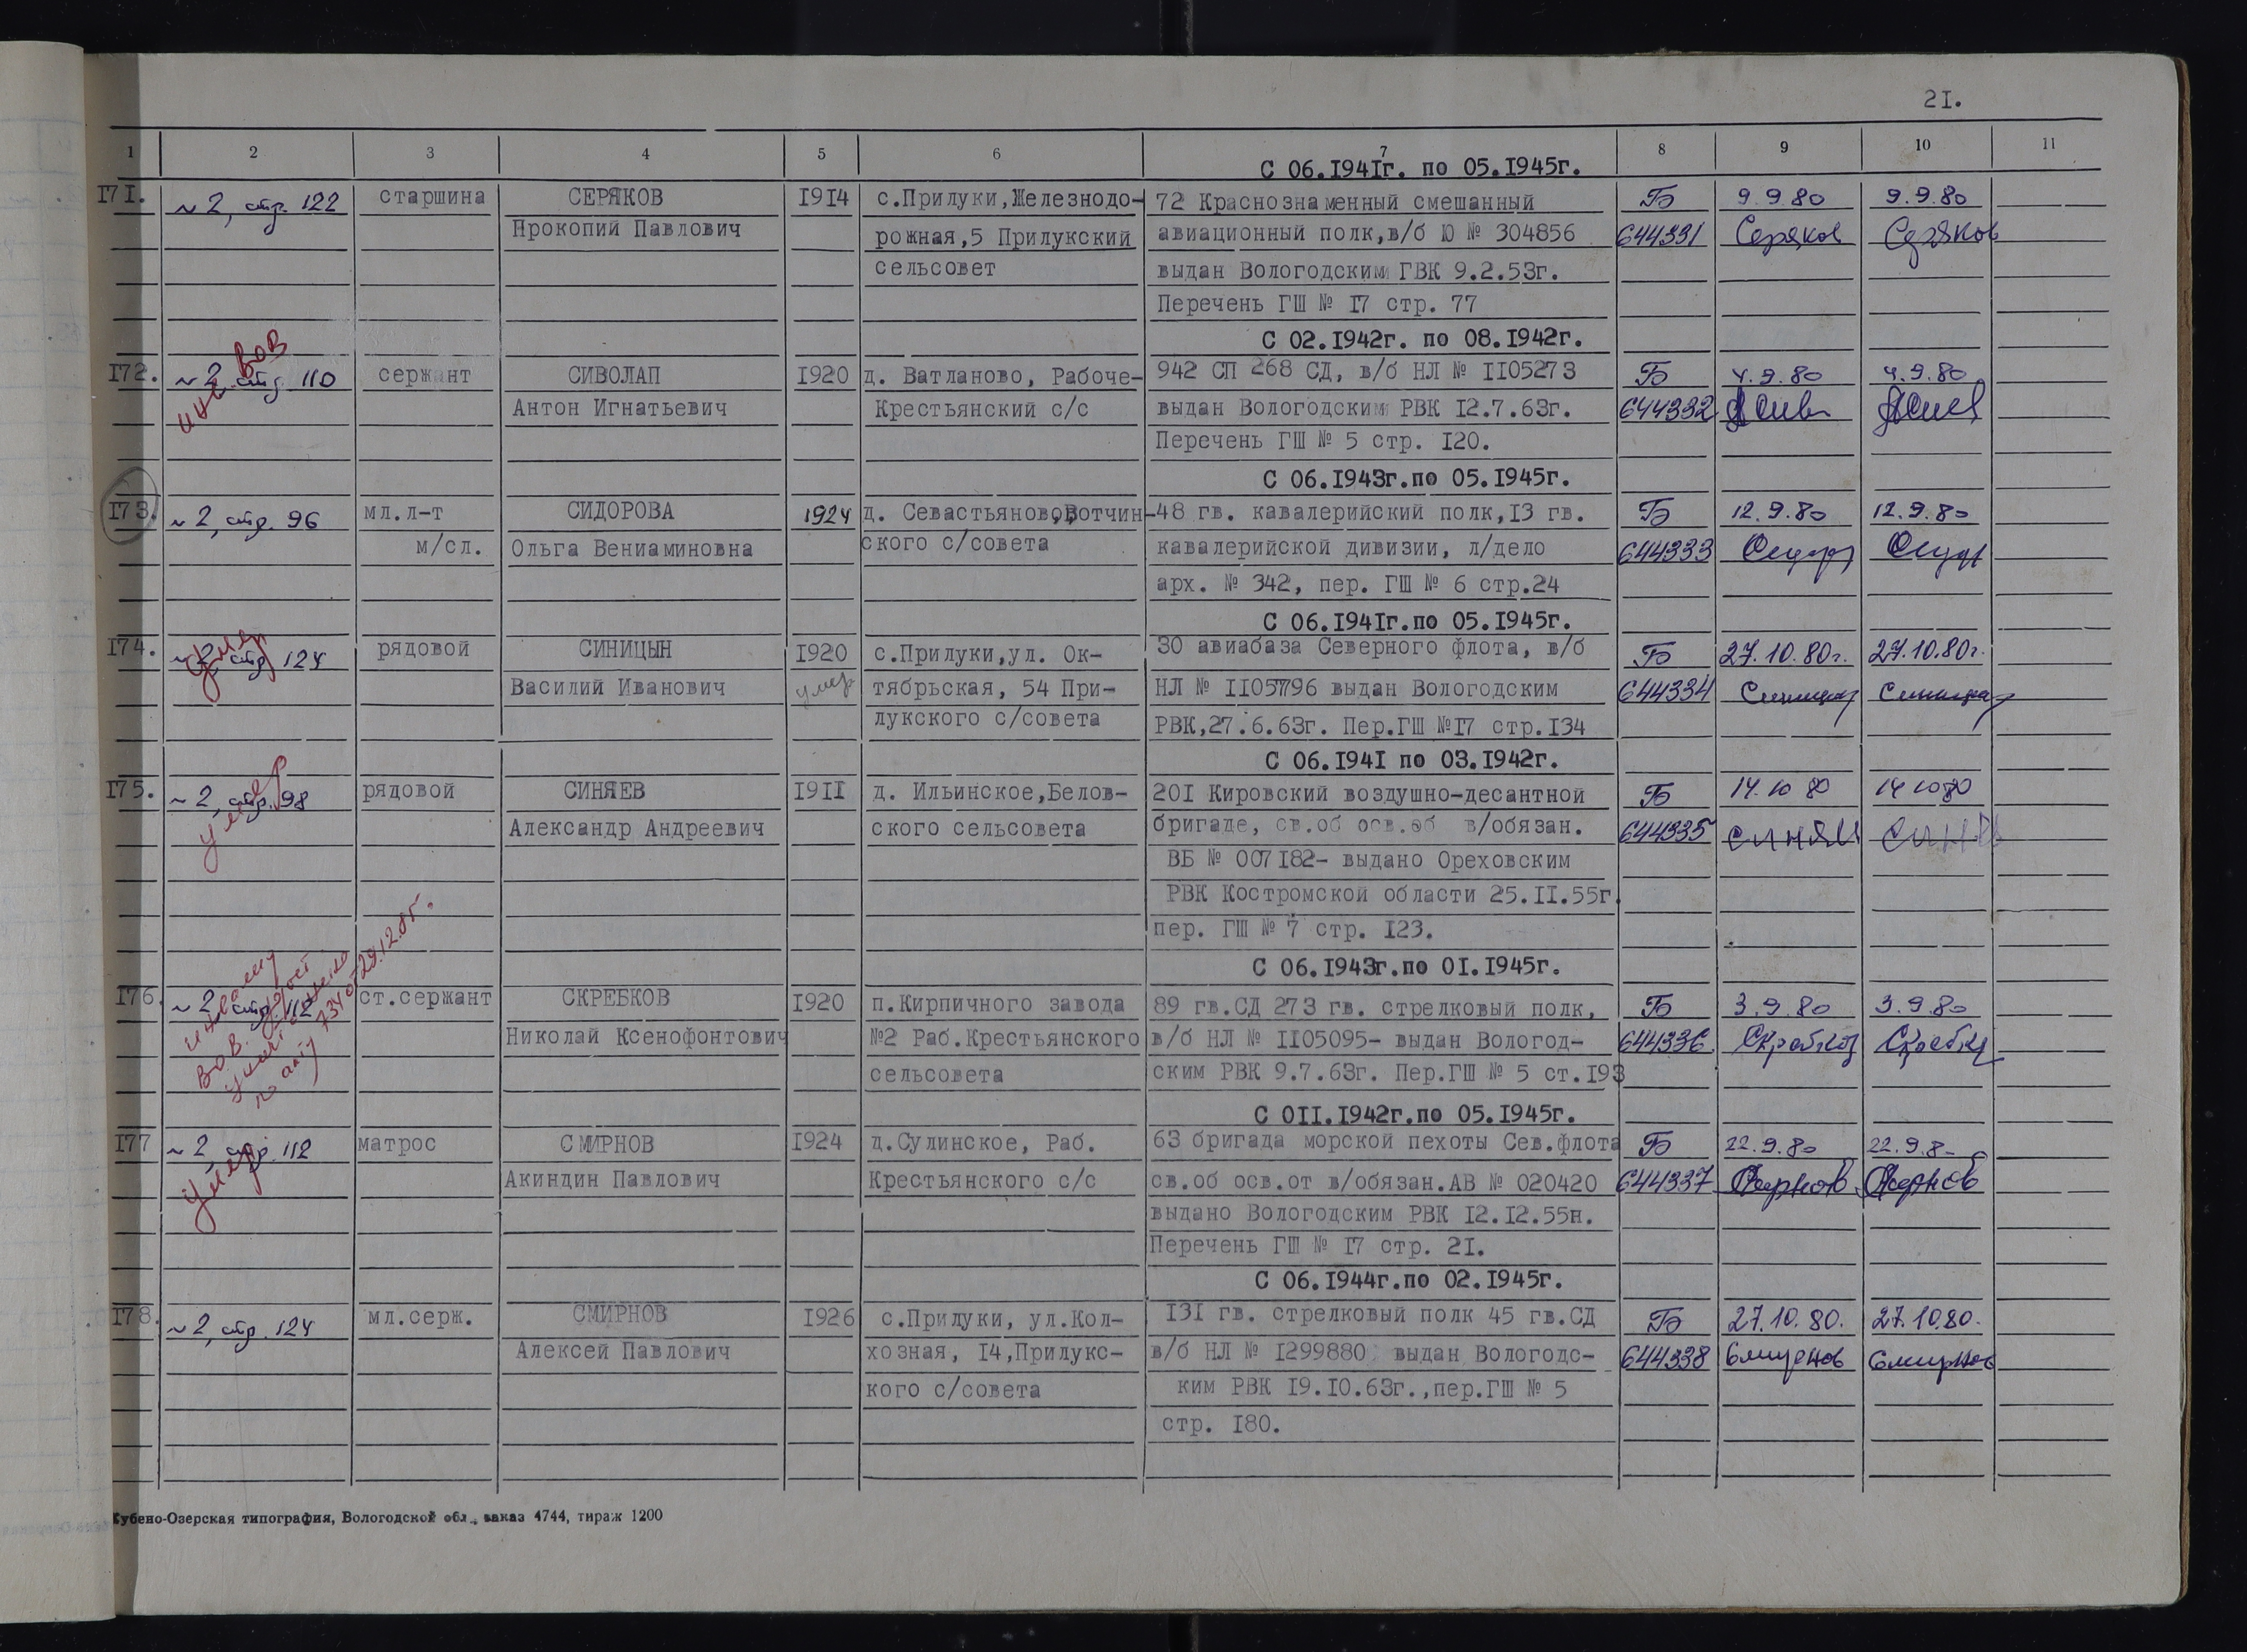 21.
1 2 3 4 5 6 7 8 9 10 11
С 06.1941г. по 05.1945г.
171. ~2, стр. 122 старшина СЕРЯКОВ 1914 с.Прилуки,Железнодо- 72 Краснознаменный смешанный Б 9.9.80 9.9.80
Прокопий Павлович рожная,5 Прилукский авиационный полк,в/б Ю № 304856 644331 Серяков Серяков
сельсовет выдан Вологодским ГВК 9.2.53г.
Перечень ГШ № 17 стр. 77
С 02.1942г. по 08.1942г.
инв ВОВ
172. ~2, стр. 110 сержант СИВОЛАП 1920 д. Ватланово, Рабоче- 942 СП 268 СД, в/б НЛ № 1105273 Б 4.9.80 4.9.80
Антон Игнатьевич Крестьянский с/с выдан Вологодским РВК 12.7.63г. 644332
Перечень ГШ № 5 стр. 120.
С 06.1943г.по 05.1945г.
173. ~2, стр. 96 мл.л-т СИДОРОВА 1924 д. Севастьяново,Вотчин- 48 гв. кавалерийский полк,13 гв. Б 12.9.80 12.9.80
м/сл. Ольга Вениаминовна ского с/совета кавалерийской дивизии, л/дело 644333
арх. № 342, пер. ГШ № 6 стр.24
С 06.1941г.по 05.1945г.
умер
174. ~2, стр. 124 рядовой СИНИЦЫН 1920 с.Прилуки,ул. Ок- 30 авиабаза Северного флота, в/б Б 27.10.80г. 27.10.80г.
Василий Иванович умер тябрьская, 54 При- НЛ № 1105796 выдан Вологодским 644334
лукского с/совета РВК,27.6.63г. Пер.ГШ №17 стр.134
С 06.1941 по 03.1942г.
умер
175. ~2, стр. 98 рядовой СИНЯЕВ 1911 д. Ильинское,Белов- 201 Кировский воздушно-десантной Б 14.10 80 14 10 80
Александр Андреевич ского сельсовета бригаде, св.об осв.об в/обязан. 644335
ВБ № 007182- выдано Ореховским
РВК Костромской области 25.11.55г.
пер. ГШ № 7 стр. 123.
С 06.1943г.по 01.1945г.
176. ~2, стр. 112 ст.сержант СКРЕБКОВ 1920 п.Кирпичного завода 89 гв.СД 273 гв. стрелковый полк, Б 3.9.80 3.9.80
ВОВ.
по акту 734 от 29.12.85г.
Николай Ксенофонтович №2 Раб.Крестьянского в/б НЛ № 1105095- выдан Вологод- 644336
сельсовета ским РВК 9.7.63г. Пер.ГШ № 5 ст.193
С 011.1942г.по 05.1945г.
177 ~2, стр. 112 матрос СМИРНОВ 1924 д.Сулинское, Раб. 63 бригада морской пехоты Сев.флота Б 22.9.80 22.9.80
умер
Акиндин Павлович Крестьянского с/с св.об осв.от в/обязан.АВ № 020420 644337
выдано Вологодским РВК 12.12.55н.
Перечень ГШ № 17 стр. 21.
С 06.1944г.по 02.1945г.
178. ~2, стр. 124 мл.серж. СМИРНОВ 1926 с.Прилуки, ул.Кол- 131 гв. стрелковый полк 45 гв.СД Б 27.10.80. 27.10.80.
Алексей Павлович хозная, 14,Прилукс- в/б НЛ № 1299880 выдан Вологодс- 644338 Смирнов Смирнов
кого с/совета ким РВК 19.10.63г.,пер.ГШ № 5
стр. 180.
Кубено-Озерская типография, Вологодской обл., заказ 4744, тираж 1200